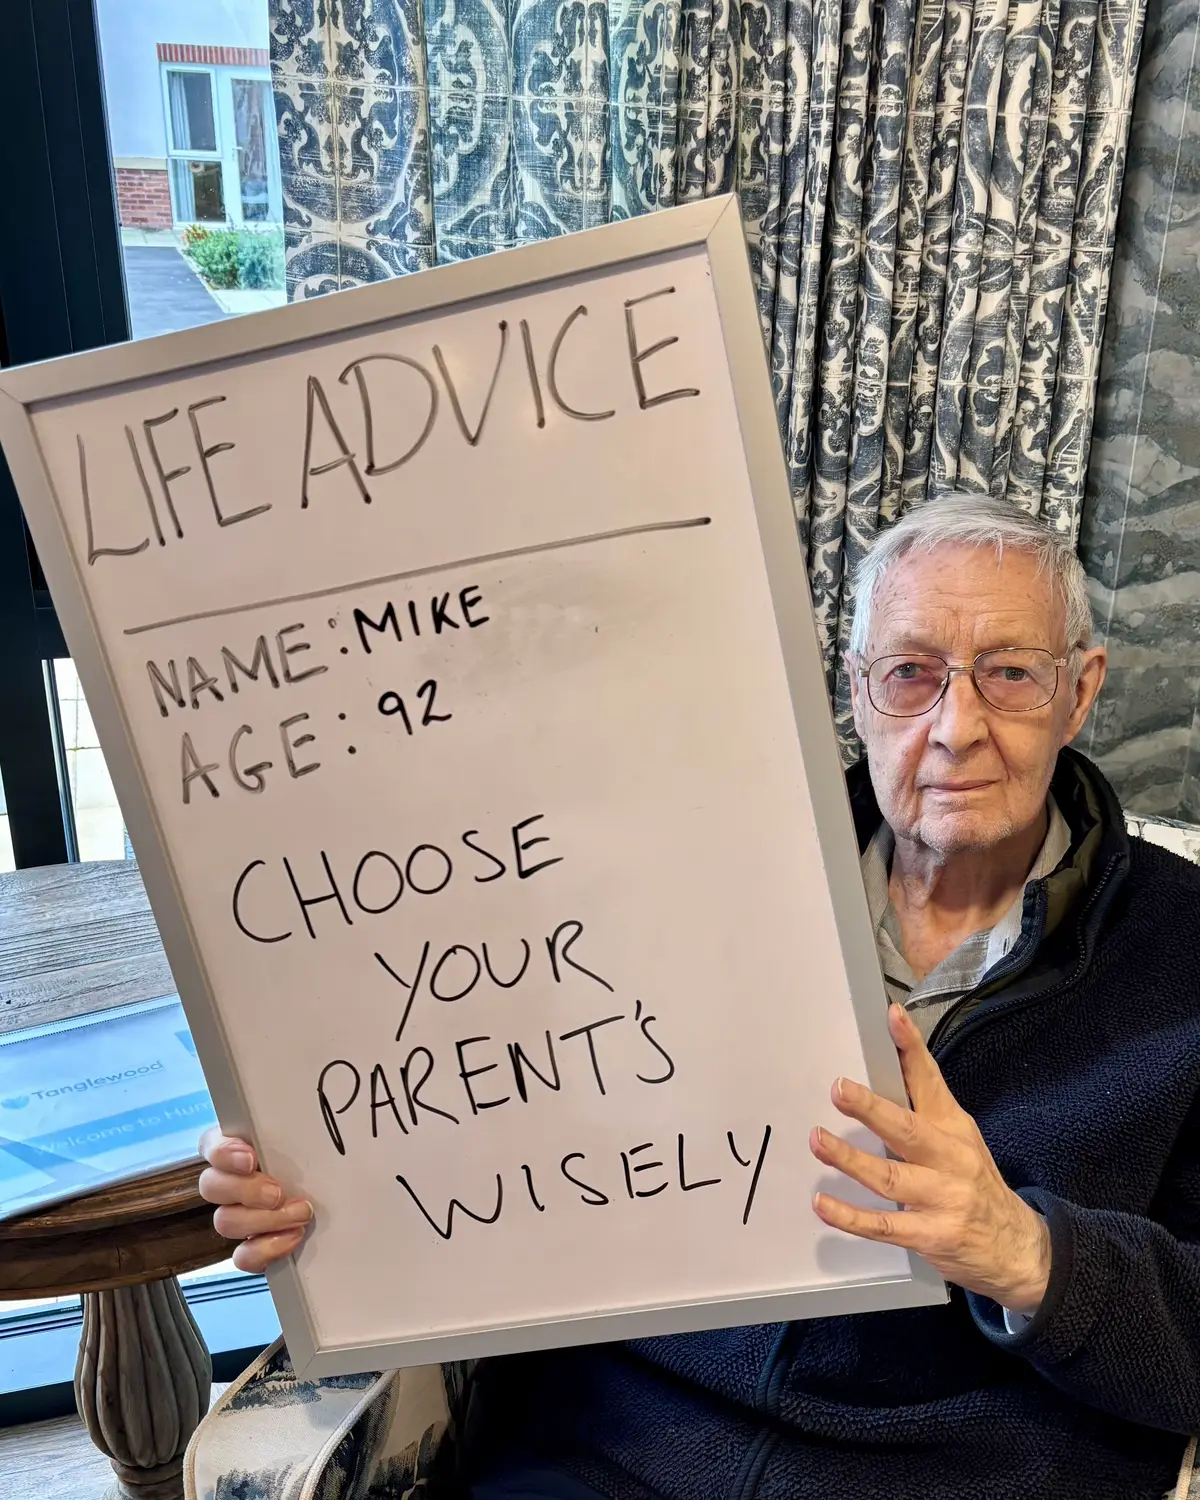 LIFE ADVICE
NAME: MIKE
AGE: 92
CHOOSE
YOUR
PARENT'S
WISELY
Tanglewood
Welcome to